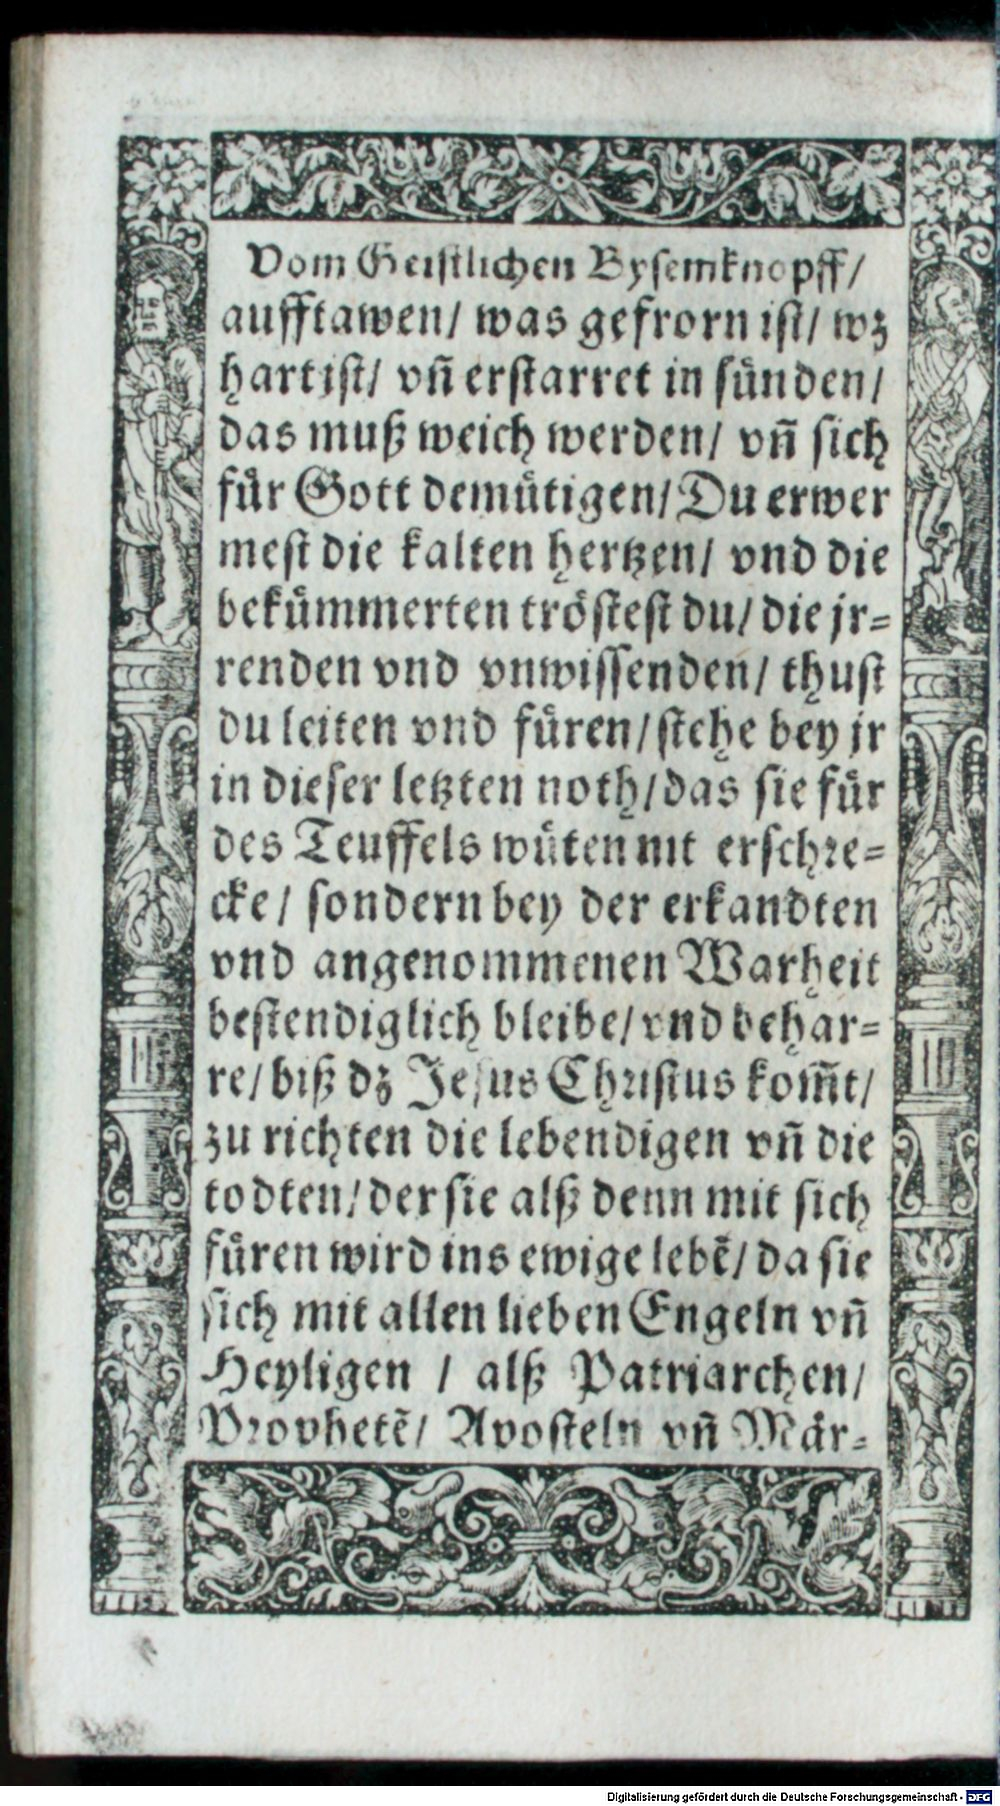 Vom Geistlichen Bysemknopff/
aufftawen/ was gefrorn ist/ wz
hart ist/ vñ erstarret in sünden/
das muß weich werden/ vñ sich
für Gott demütigen/ Du erwer
mest die kalten hertzen/ vnd die
bekümmerten tröstest du/ die jr=
renden vnd vnwissenden/ thust
du leiten vnd füren/ stehe bey jr
in dieser letzten noth/ das sie für
des Teuffels wüten nit erschre=
cke/ sondern bey der erkandten
vnd angenommenen Warheit
bestendiglich bleibe/ vnd behar=
re/ biß dz Jesus Christus kom̃t/
zu richten die lebendigen vñ die
todten/ der sie alß denn mit sich
füren wird ins ewige lebẽ/ da sie
sich mit allen lieben Engeln vñ
Heyligen / alß Patriarchen/
Prophetẽ/ Aposteln vñ Mär=
Digitalisierung gefördert durch die Deutsche Forschungsgemeinschaft - DFG